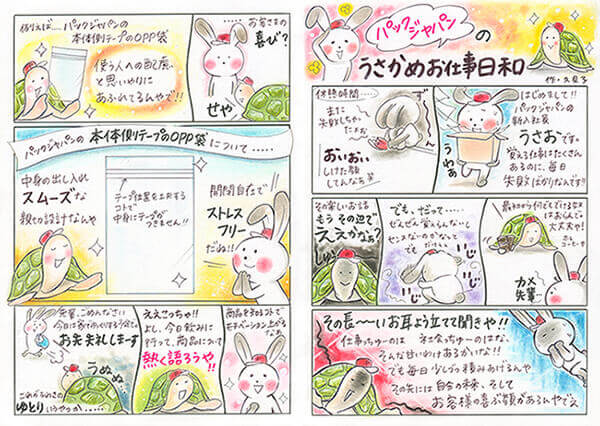 パックジャパンの
うさかめお仕事日和
はじめまして!!
パックジャパンの
新入社員
うさおです。
覚える仕事はたくさん
あるのに、毎日
失敗ばかりなんです!!
うわぁ
休憩時間…
また
失敗しちゃっ
たなぁ
おいおい
しけた顔
してんなぁ
でも、だって……
ぜんぜん覚えらんないし
でも
もうその辺で
ええかぁ?
カメ
先輩…
その長〜いお耳よう立てて聞きや!!
仕事っちゅーのは
そんな甘いわけあるかいな!!
でも毎日少しづつ積みあげるんや
その先には自分の未来、そして
お客様の喜ぶ顔があるんやでぇ
お客さまの
喜び?
せや
例えば…パックジャパンの
本体側テープのOPP袋
使う人への配慮
と思いやりに
あふれてるんやで!!
パックジャパンの本体側テープのOPP袋について……
中身の出し入れ
スムーズな
親切設計なんや
テープ位置を工夫する
コトで
中身にテープが
つきません!!
開閉自在で
ストレス
フリー
だね!!
商品を知るコトで
モチベーション上がる
なぁ
ええこっちゃ!!
よし、今日飲みに
行って、商品について
熱く語ろうや!!
先輩、ごめんなさい
お先失礼しまーす
うぬぬ
これがうわさの
ゆとり
いうやつか……